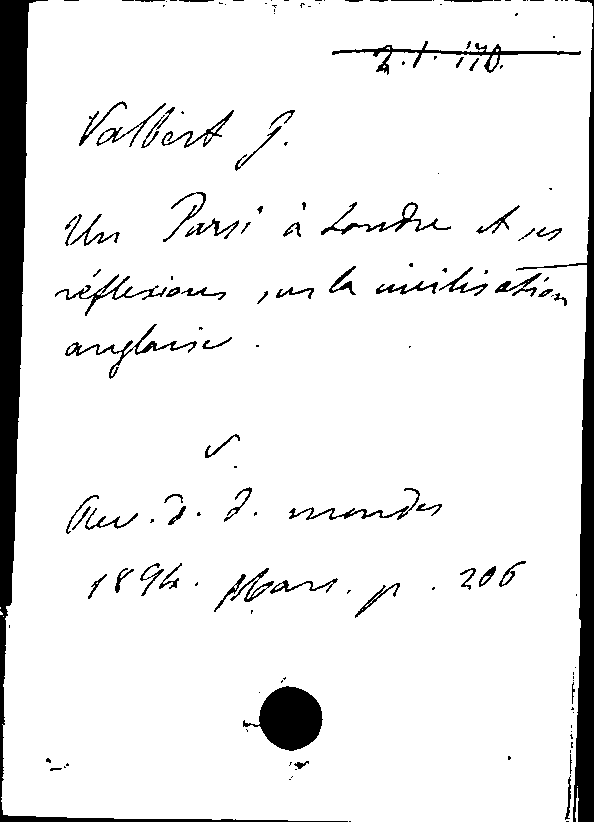 2.1.170.
Valbert G.
Un Parsi à Londre et ses
réflexions sur la civilisation
anglaise.
v.
Rev. d. d. mondes
1894. Mars. p. 206